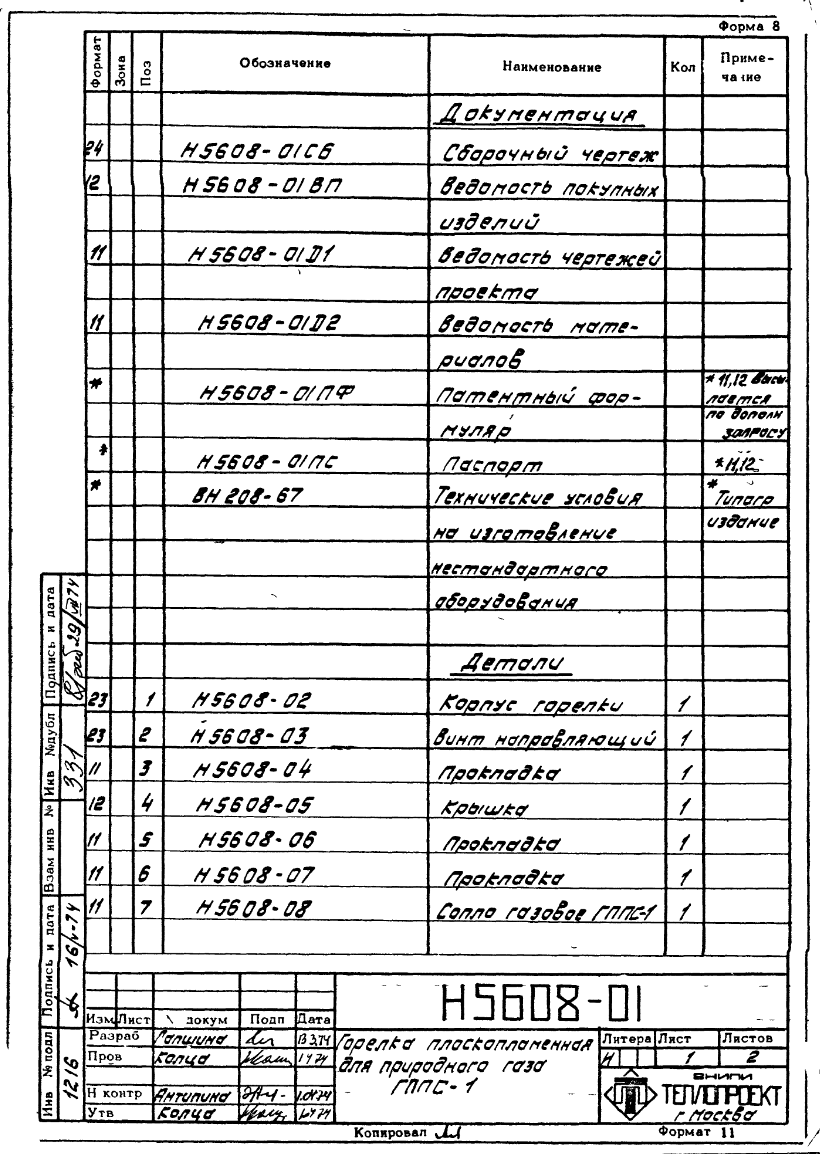 Форма 8
Формат Зона Поз Обозначение Наименование Кол Приме-
чание
Документация
24 Н5608-01СБ Сборочный чертеж
12 Н5608-01ВП Ведомость покупных
изделий
11 Н5608-01Д1 Ведомость чертежей
проекта
11 Н5608-01Д2 Ведомость мате-
риалов
* Н5608-01ПФ Патентный фор- * 11,12 Высы-
лается
муляр по дополн
запросу
* Н5608-01ПС Паспорт * 11,12
* ВН 208-67 Технические условия * Типогр
на изготовление издание
нестандартного
оборудования
Детали
23 1 Н5608-02 Корпус горелки 1
23 2 Н5608-03 Винт направляющий 1
11 3 Н5608-04 Прокладка 1
12 4 Н5608-05 Крышка 1
11 5 Н5608-06 Прокладка 1
11 6 Н5608-07 Прокладка 1
11 7 Н5608-08 Сопло газовое ГППС-1 1
Подпись и дата
Инв №дубл 331
Взам инв №
Подпись и дата 16/V-74
Инв № подл 1216
Н5608-01
Изм Лист № докум Подп Дата
Разраб Лапшина 13.3.74
Пров Капца 1.4.74
Н контр Антипина 1.04.74
Утв Капца 1.4.74
Горелка плоскопламенная
для природного газа
ГППС-1
Литера Лист Листов
И 1 2
ВНИПИ
ТЕПЛОПРОЕКТ
г Москва
Копировал Формат 11